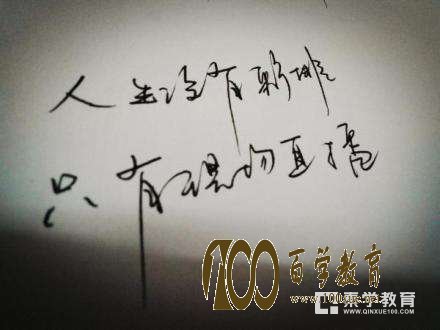 人生没有彩排
只有现场直播
100百学教育
www.100xue.net
秦学教育
WWW.QINXUE100.COM